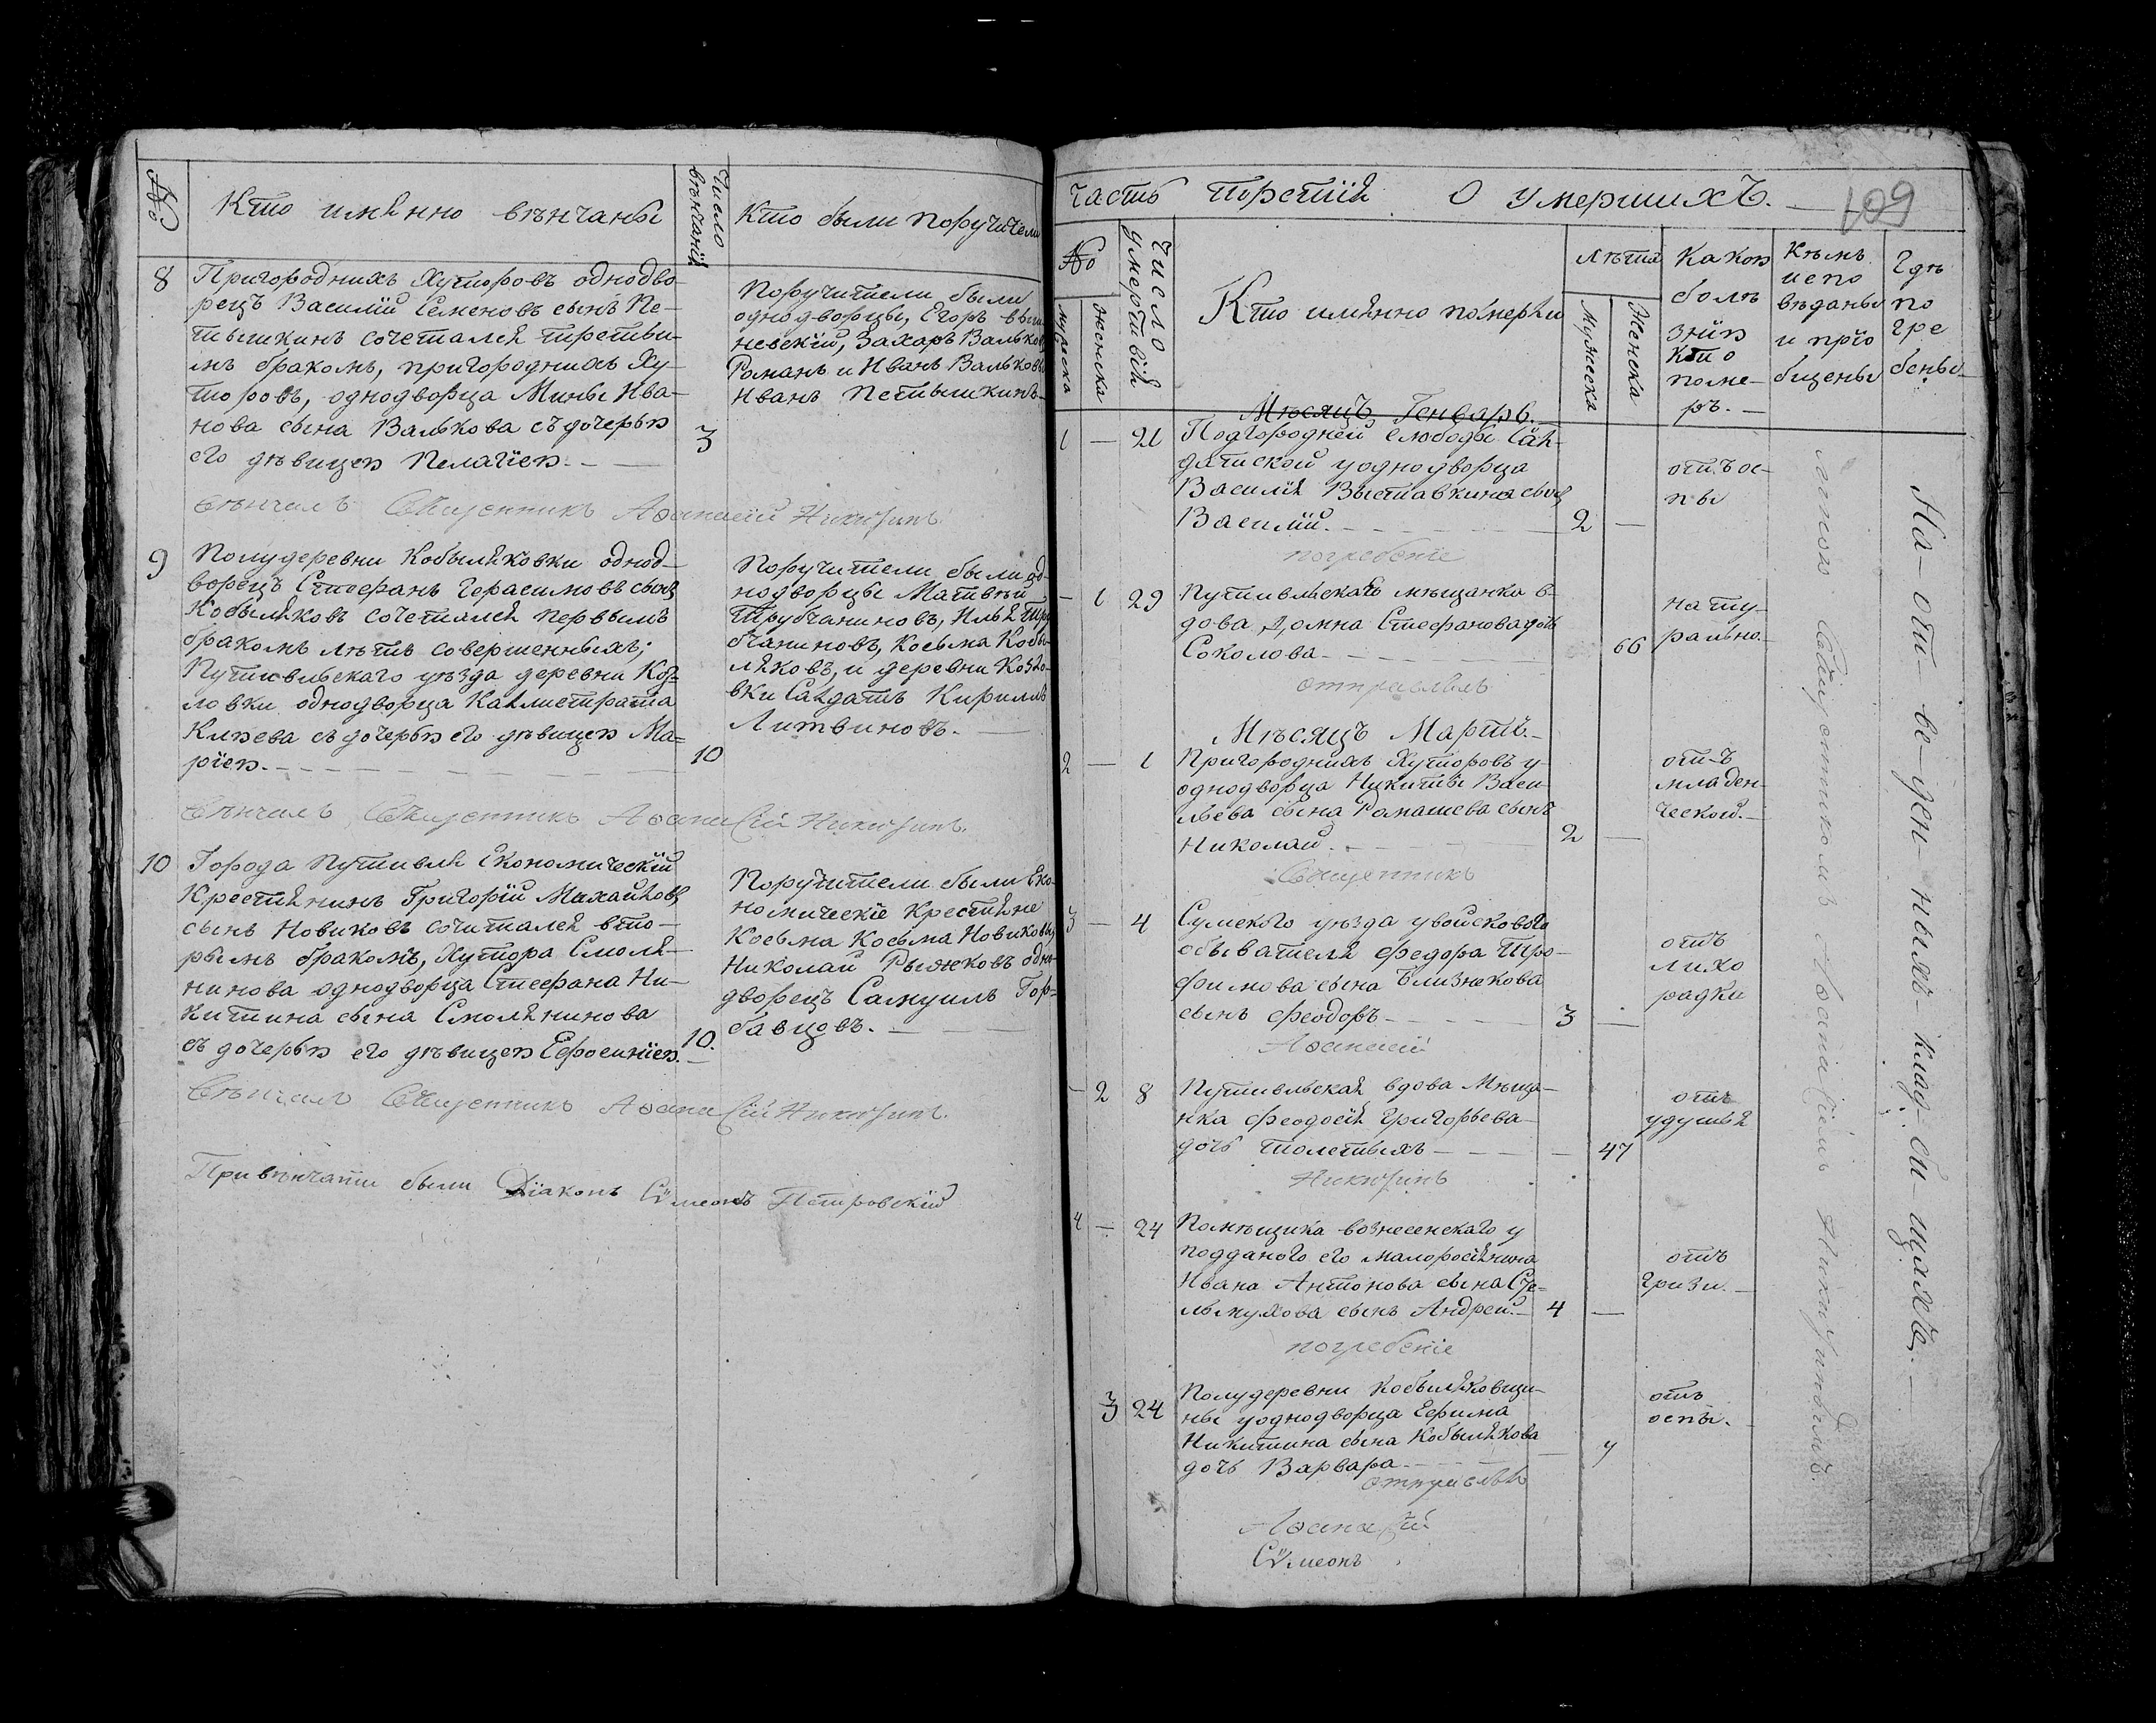 №
Кто имянно венчаны
Число венчаній
Кто были поручители
8
Пригороднихъ Хуторовъ однодво-
рецъ Василій Семеновъ сынъ Пе-
тышкинъ сочетался третьи-
мъ бракомъ, пригороднихъ Ху-
торовъ, однодворца Мины Ива-
нова сына Валькова съ дочерью
его девицею Пелагіею.
3
Поручители были
однодворцы, Егоръ
Захаръ Вальковъ
Романъ и Иванъ Вальковы
Иванъ Петышкинъ
Венчалъ Священникъ Аѳанасій Никитинъ
9
Полудеревни Кобыляковки однод-
ворецъ Стефанъ Герасимовъ сынъ
Кобыляковъ сочетался первымъ
бракомъ летъ совершенныхъ;
Путивльскаго уезда деревни Коз-
ловки однодворца Каллистрата
съ дочерью его девицею Ма=
ріею.
10
Поручители были од-
нодворцы Матвей
Трубчаниновъ, Илья Тру
бчаниновъ, Косьма Кобы-
ляковъ, и деревни Козло-
вки Салдатъ Кириллъ
Литвиновъ.
Венчалъ Священникъ Аѳанасій Никитинъ.
10
Города Путивля Економическій
Крестянинъ Григорій Михайловъ
сынъ Новиковъ сочитался вто-
рымъ бракомъ, Хутора Смоля-
нинова однодворца Стефана Ни-
китина сына Смолянинова
съ дочерью его девицею Ефросиніею.
10.
Поручители были Еко-
номическіе Крестяне
Косьма Косьма Новиковы,
Николай Рыжковъ одно-
дворецъ Самуилъ Гор=
бавцовъ.
Венчалъ Священникъ Аѳанасій Никитинъ.
При венчаніи были Діаконъ Сѵмеонъ Петровскій
Часть Торетій О умершихъ.
109
№
мужеска
женска
Число умертвій
Кто имянно померли
Лета
Мужеска
Женска
Какою
боле
знію
кто
поме-
ръ.
Кемъ
испо
веданы
и прїо
бщены
Где
по
гре
бены
Месяцъ Генварь.
1 — 21
Подгородней слободы Сал-
датской у однодворца
Василія Выставкина сынъ
Василій.
2 —
отъ ос-
пы
погребеніе
— 1 29
Путивльскаго мещанка в-
дова Домна Стефанова дочь
Соколова
66
нату-
рально.
отправлялъ
Месяцъ Мартъ.
2 — 1
Пригороднихъ Хуторовъ у
однодворца Никиты Васи-
льева сына Ромашева сынъ
Николай.
2 —
отъ
младен-
ческой.
Священникъ
3 — 4
Сумского уезда у войскового
обывателя Федора Тро-
фимова сына Близнюкова
сынъ Феодоръ
3 —
отъ
лихо
радки
Аѳанасій
— 2 8
Путивльская вдова Меща-
нка Феодосія Григорьева
дочь Толстыхъ
— 47
отъ
удушья
Никитинъ
4 — 24
Помещика вознесенскаго у
подданого его малоросіянина
Ивана Антонова сына
сынъ Андрей.
4 —
отъ
Гризи.
погребеніе
3 24
Полудеревни Кобыляковщи-
ны у однодворца Ефима
Никитина сына Кобылякова
дочь Варвара
отъ
оспы.
отправлялъ
Аѳанасій
Сѵмеонъ
Священникомъ Аѳанасіемъ Никитинымъ.
На от-ве-ден-ныхъ клад-би-щахъ.